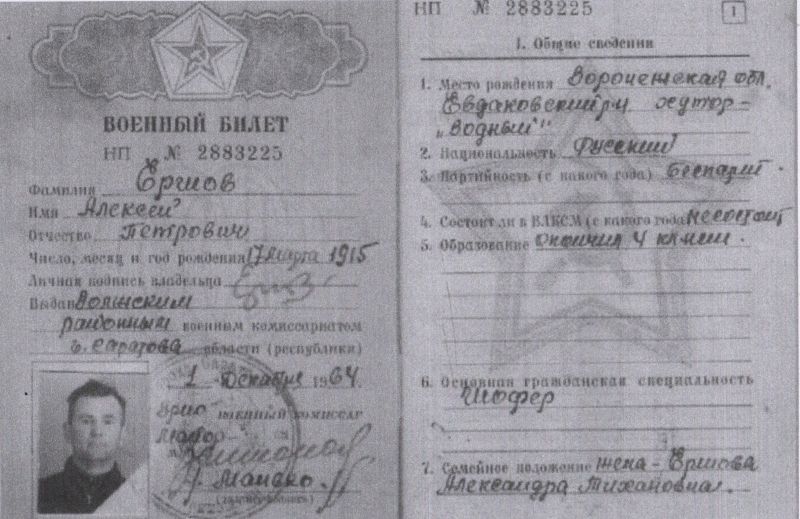 ВОЕННЫЙ БИЛЕТ
НП № 2883225
Фамилия Ершов
Имя Алексей
Отчество Петрович
Число, месяц и год рождения 17 марта 1915
Личная подпись владельца
Выдан Волжским
районным военным комиссариатом
г. Саратова области (республики)
1 декабря 1964
Врио военный комиссар
майор
НП № 2883225
1
I. Общие сведения
1. Место рождения Воронежская обл.
Евдаковский р-н хутор-
„Водный"
2. Национальность Русский
3. Партийность (с какого года) Беспарт.
4. Состоит ли в ВЛКСМ (с какого года) не состоит
5. Образование окончил 4 класса.
6. Основная гражданская специальность
Шофер
7. Семейное положение жена - Ершова
Александра Тихоновна.